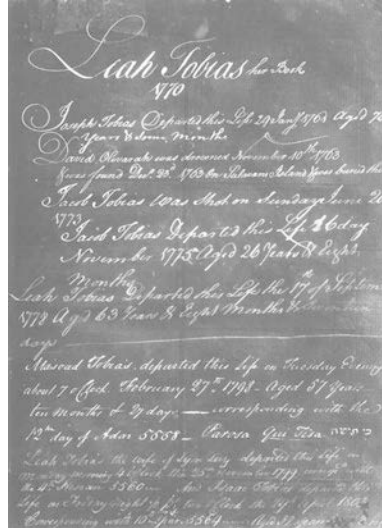 Leah Tobias her Book
1770
Joseph Tobias Departed this Life 29 Jany 1761 Aged 7
Years & some Months
David Olivarah was drowned November 10th 1763
& was found Decr. 1763 on Island & was buried
Jacob Tobias was Shot on Sunday June 2
1773
Jacob Tobias Departed this Life 26 day
November 1775 Aged 26 Years & Eight
Months
Leah Tobias Departed this Life the 17th of Septem
1778 Aged 63 Years & Eight Months &
days
Masead Tobias departed this Life on Tuesday Evening
about 7 o Clock February 27th 1798 Aged 57 Years
ten months & 27 days — corresponding with the
12th day of Adar 5558 — Parosa Tisa כי תשא
Leah Tobias the wife of departed this life on
morning 4 o'Clock the 25th November 1799
the 5560 — And Isaac Tobias departed this
Life on Friday night o'Clock the April 180
Corresponding with 10th 5564